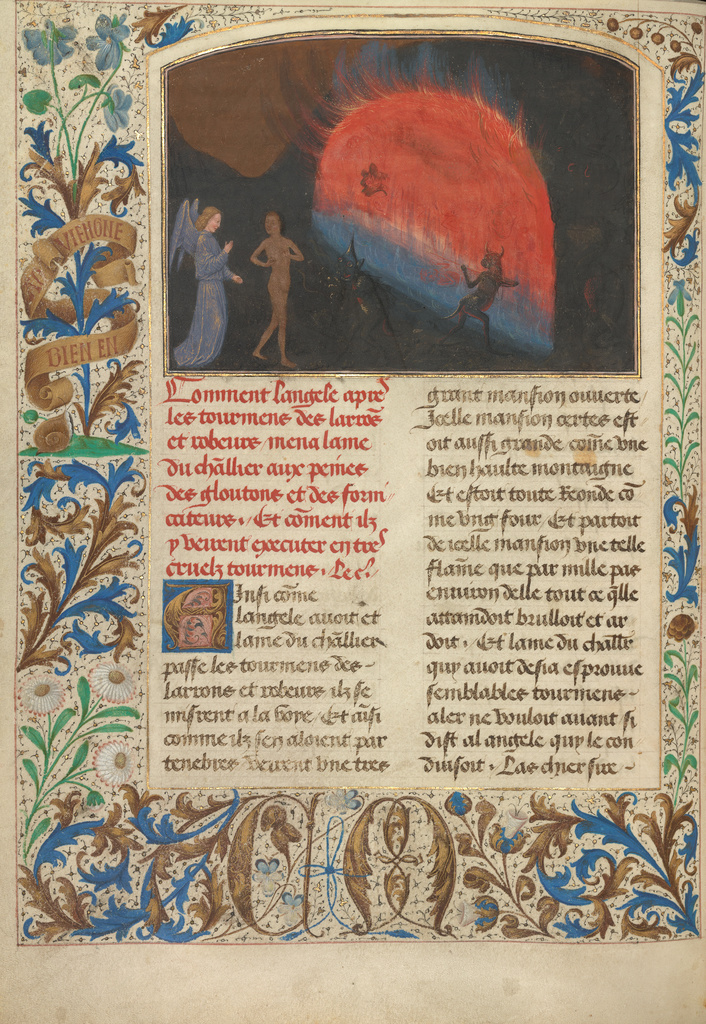 BIEN EN
Comment langele apres
les tourmens des larrõs
et robeurs mena lame
du chãllier aux peines
des gloutons et des forni
cateurs. Et cõment ilz
y veirent executer en tres
cruelz tourmens. Le c.
Ainsi cõme
langele auoit et
lame du chãllier
passe les tourmens des
larrons et robeurs ilz se
misrent a la voye / Et aĩsi
comme ilz sen aloient par
tenebres veirent vne tres
grant mansion ouuerte /
Jcelle mansion certes est
oit aussi grande cõme vne
bien haulte montaigne
Et estoit toute reonde cõ
me vng four / Et partoit
de icelle mansion vne telle
flãme que par mille pas
enuiron delle tout ce q̃lle
attaindoit brulloit et ar
doit. Et lame du chãllr
quy auoit desia esprouue
semblables tourmens
aler ne vouloit auant si
dist al angele quy le con
duisoit. Las chier sire
C M